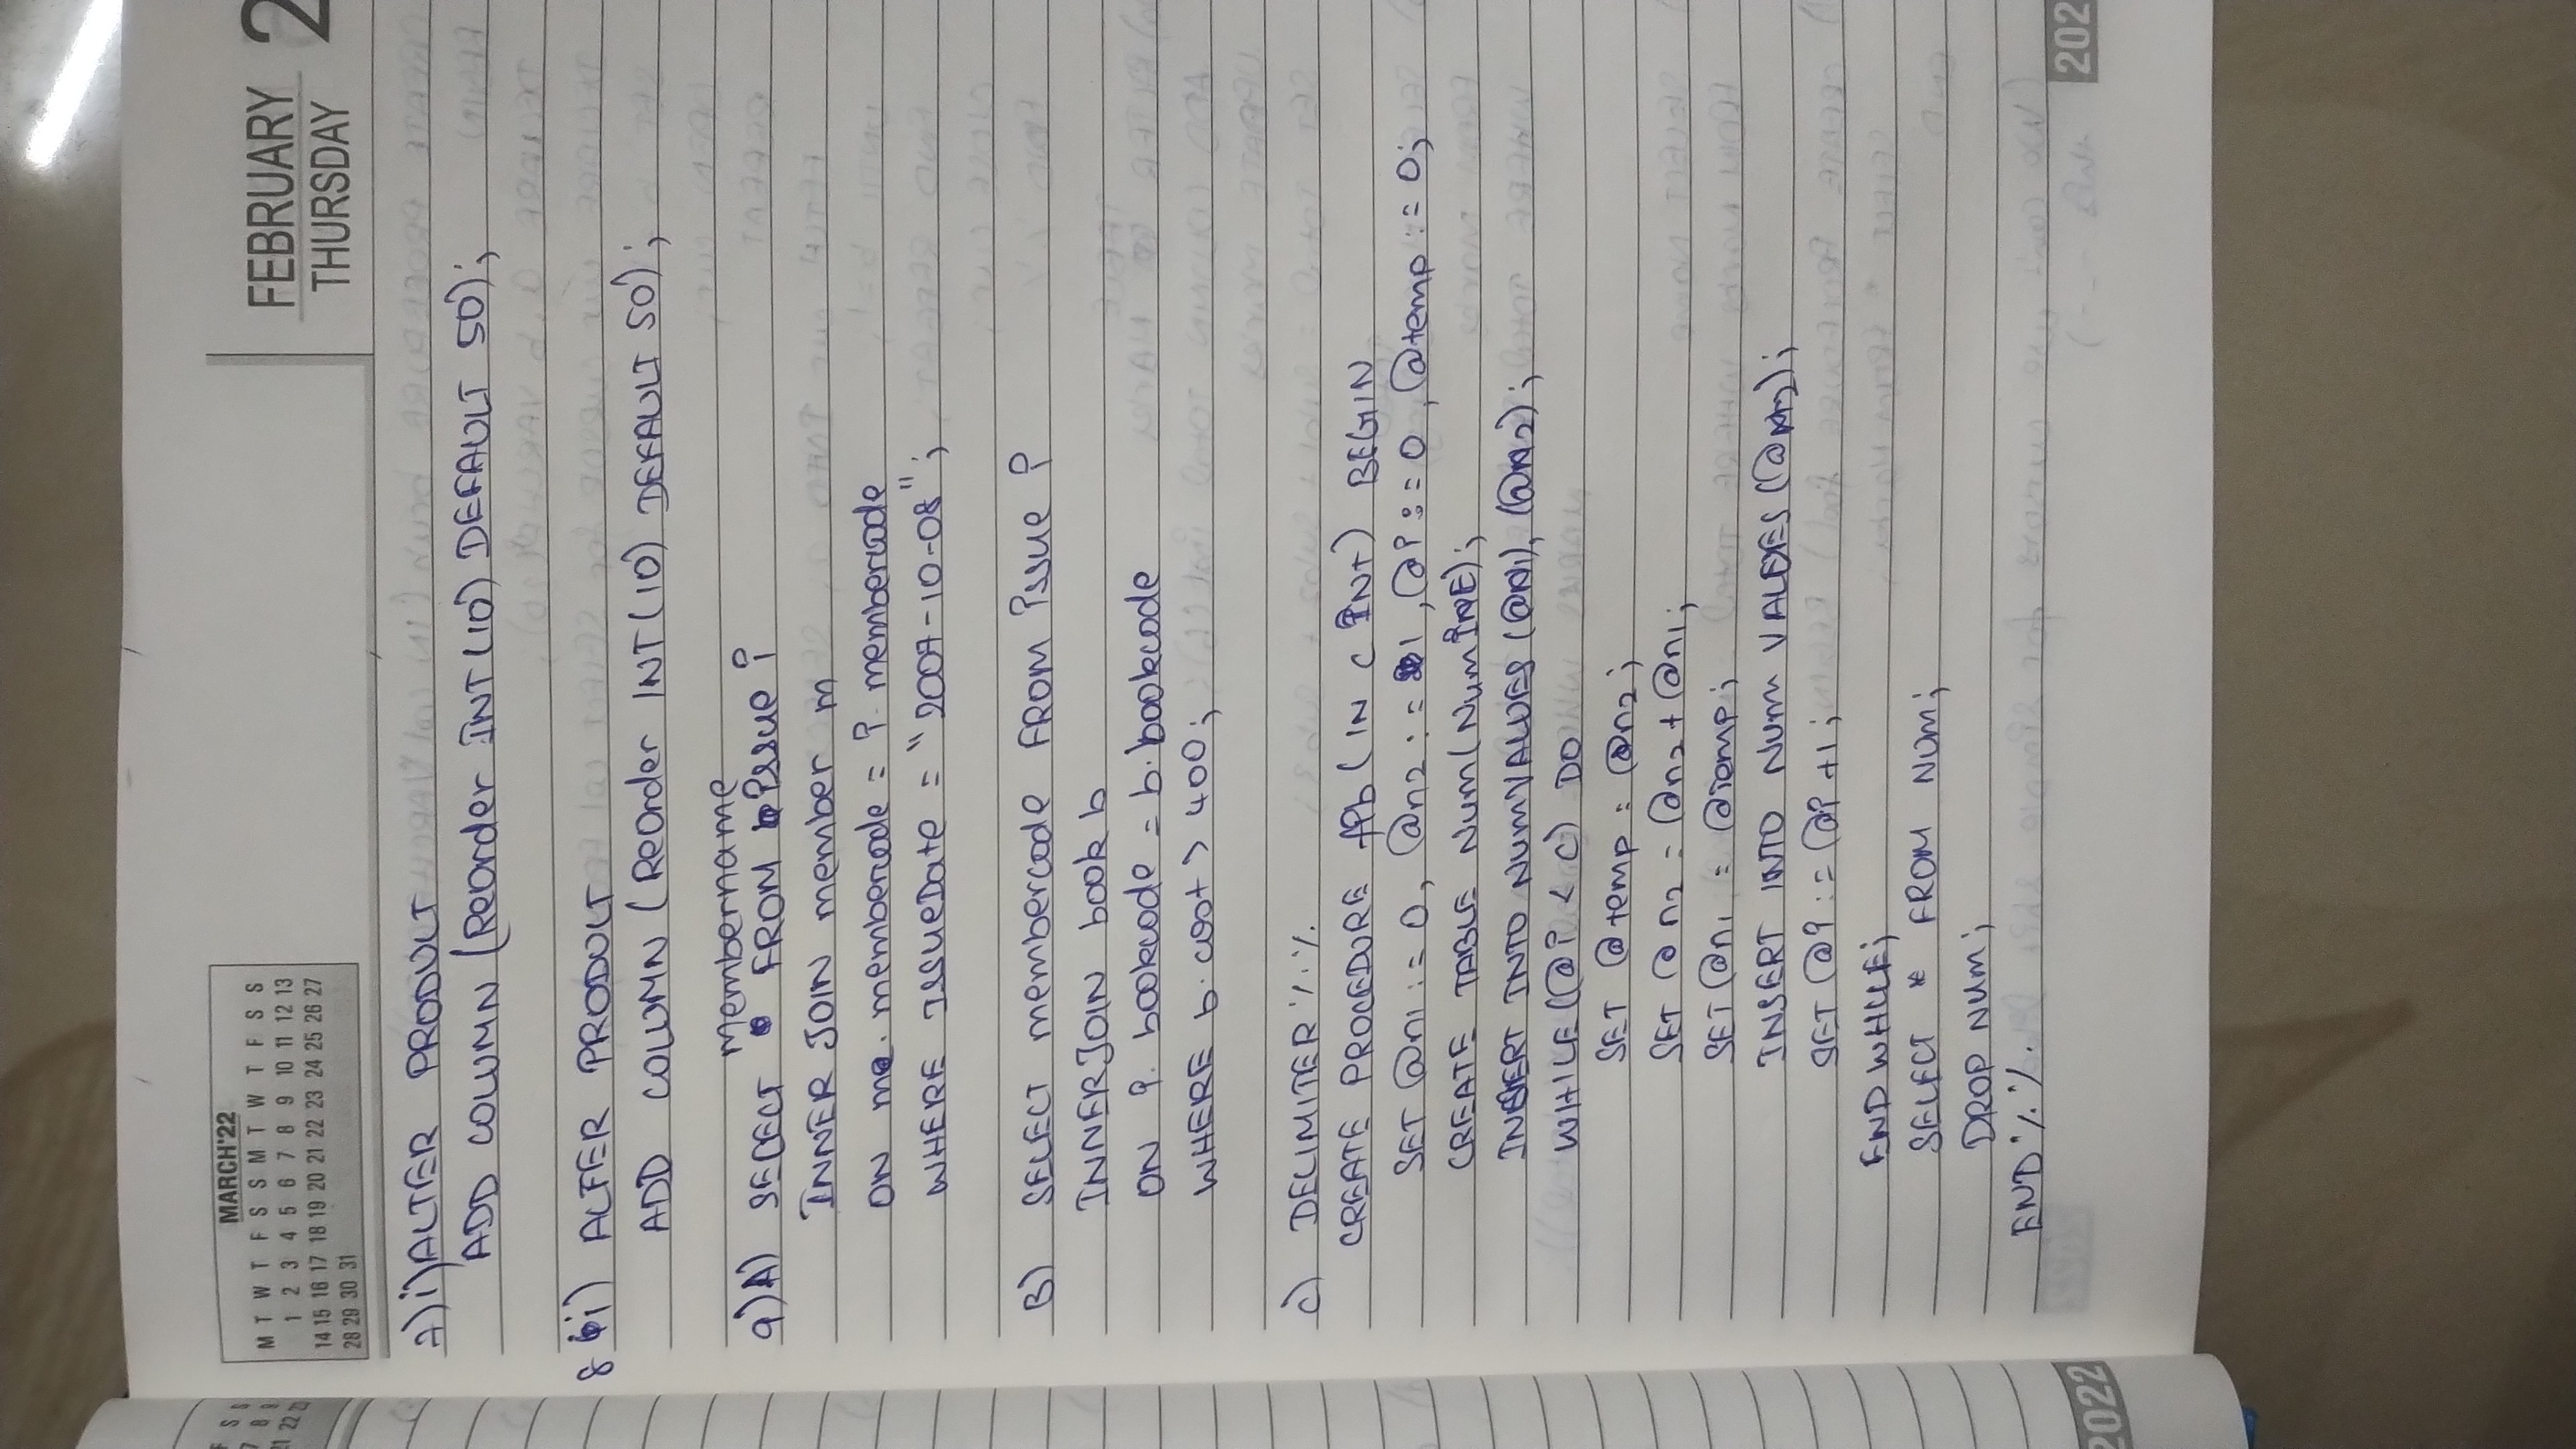 MARCH'22
M T W T F S S M T W T F S S
1 2 3 4 5 6 7 8 9 10 11 12 13
14 15 16 17 18 19 20 21 22 23 24 25 26 27
28 29 30 31
FEBRUARY 2
THURSDAY
7)i) ALTER PRODUCT
ADD COLUMN (Reorder INT(10) DEFAULT 50);
8 ii) ALTER PRODUCT
ADD COLUMN (Reorder INT(10) DEFAULT 50);
membername
9)A) SELECT FROM issue i
INNER JOIN member m
ON m. membercode = i. membercode
WHERE IssueDate = "2007-10-08";
B) SELECT membercode FROM issue i
INNER JOIN book b
ON i. bookcode = b. bookcode
WHERE b. cost > 400;
C) DELIMITER %%
CREATE PROCEDURE fib (IN C INT) BEGIN
SET @n1 := 0, @n2 := 1, @i := 0, @temp := 0;
CREATE TABLE Num(Num INT);
INSERT INTO NUM VALUES (@n1), (@n2);
WHILE (@i < C) DO
SET @temp = @n2;
SET @n2 = @n2 + @n1;
SET @n1 = @temp;
INSERT INTO Num VALUES (@n2);
SET @i := @i +1;
END WHILE;
SELECT * FROM NUM;
DROP NUM;
END %%
2022
202